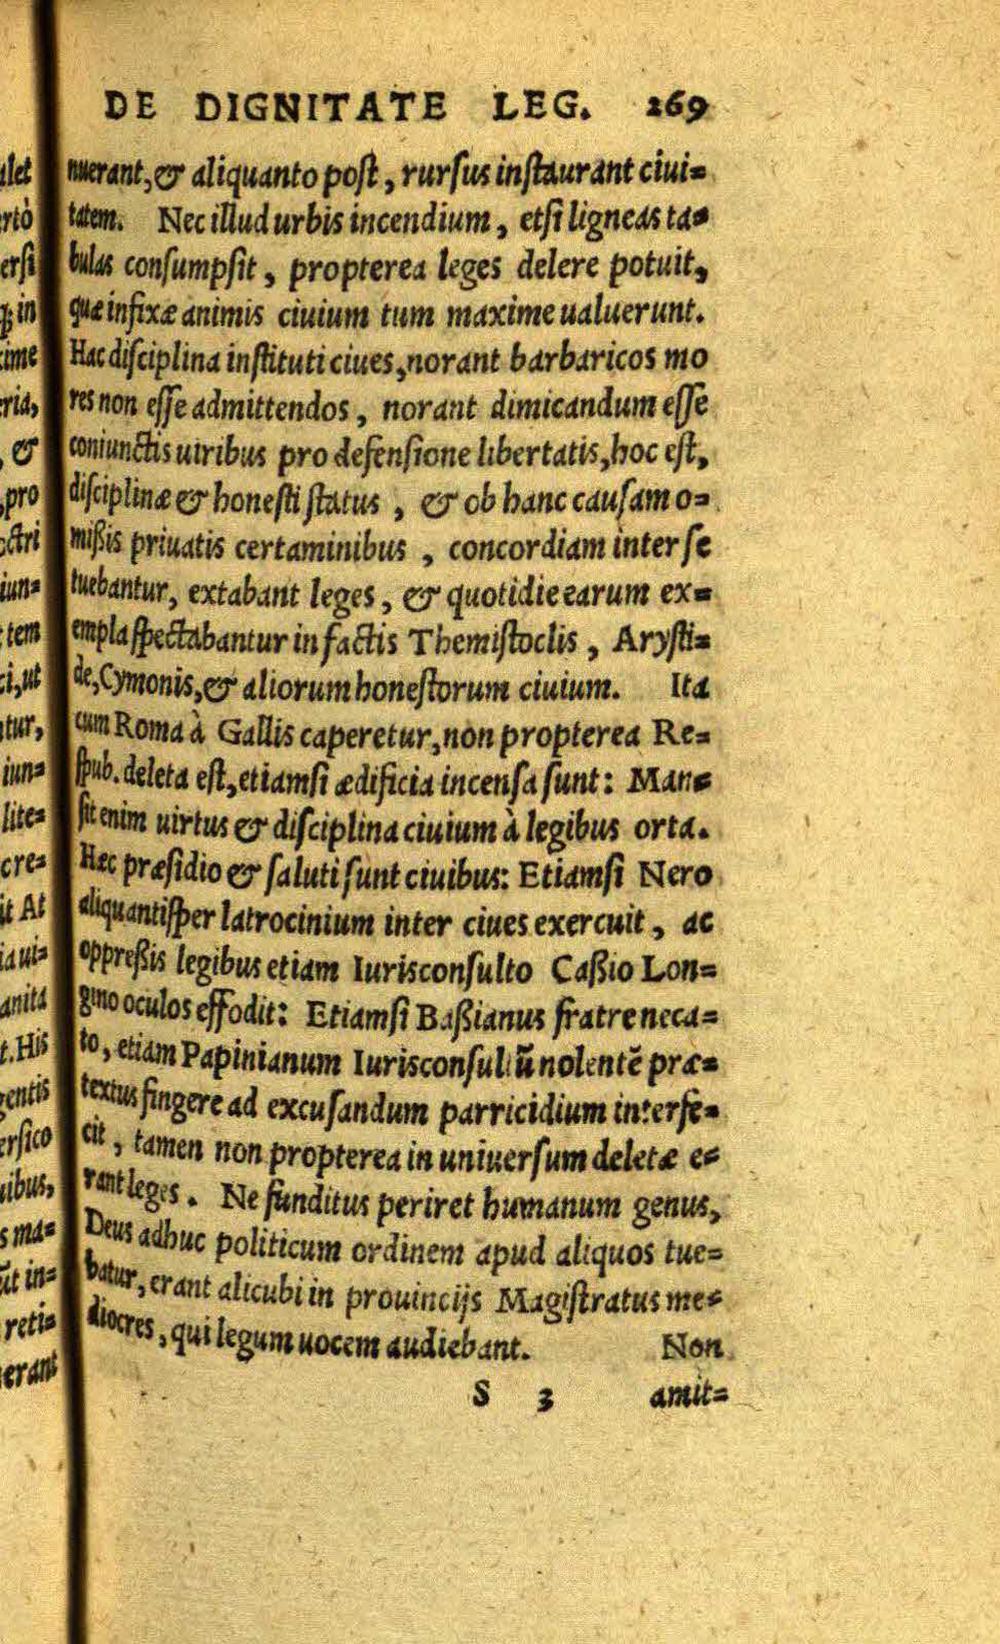 DE DIGNITATE LEG. 269
nuerant, & aliquanto post, rursus instaurant ciui=
tatem. Nec illud urbis incendium, etsi ligneas ta=
bulas consumpsit, propterea leges delere potuit,
quæ infixæ animis ciuium tum maxime ualuerunt.
Hac disciplina instituti ciues, norant barbaricos mo
res non esse admittendos, norant dimicandum esse
coniunctis uiribus pro defensione libertatis, hoc est,
disciplinæ & honesti status, & ob hanc causam o=
mißis priuatis certaminibus, concordiam inter se
tuebantur, extabant leges, & quotidie earum ex=
empla spectabantur in factis Themistoclis, Arysti=
de, Cymonis, & aliorum honestorum ciuium. Ita
cum Roma à Gallis caperetur, non propterea Re=
spub. deleta est, etiamsi ædificia incensa sunt: Man=
sit enim uirtus & disciplina ciuium à legibus orta.
Hæc præsidio & saluti sunt ciuibus: Etiamsi Nero
aliquantisper latrocinium inter ciues exercuit, ac
oppreßis legibus etiam Iurisconsulto Caßio Lon=
gino oculos effodit: Etiamsi Baßianus fratre neca=
to, etiam Papinianum Iurisconsultū nolentē præ=
textus fingere ad excusandum parricidium interfe=
cit, tamen non propterea in uniuersum deletæ e=
rant leges. Ne funditus periret humanum genus,
Deus adhuc politicum ordinem apud aliquos tue=
batur, erant alicubi in prouincijs Magistratus me=
diocres, qui legum uocem audiebant. Non
S 3 amit=